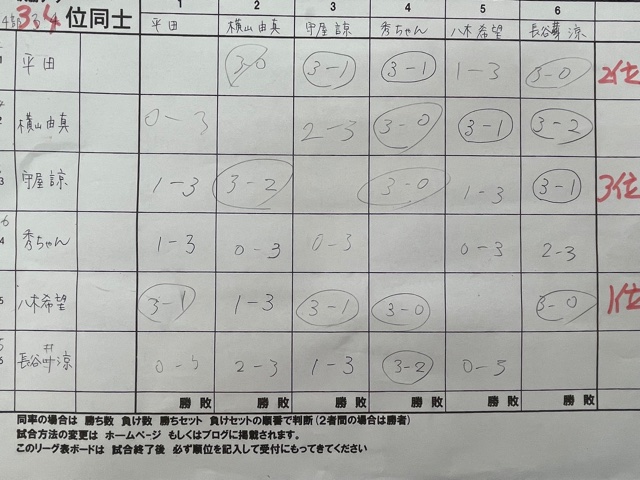 334位同士
1 2 3 4 5 6
平田 横山由真 守屋諒 秀ちゃん 八木希望 長谷井涼
1 平田 3-0 3-1 3-1 1-3 3-0 2位
2 横山由真 0-3 2-3 3-0 3-1 3-2
3 守屋諒 1-3 3-2 3-0 1-3 3-1 3位
4 秀ちゃん 1-3 0-3 0-3 0-3 2-3
5 八木希望 3-1 1-3 3-1 3-0 3-0 1位
6 長谷井涼 2-3 1-3 3-2
勝敗 勝敗 勝敗 勝敗 勝敗 勝敗
同率の場合は 勝ち数 負け数 勝ちセット 負けセットの順番で判断(2者間の場合は勝者)
試合方法の変更は ホームページ もしくはブログに掲載されます。
このリーグ表ボードは 試合終了後 必ず順位を記入して受付にもってきてください